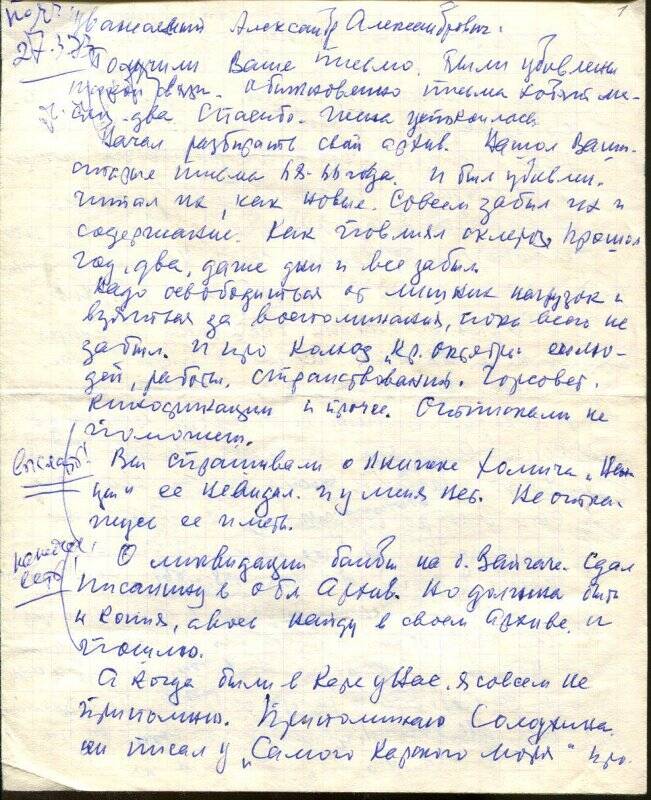 1
Уважаемый Александр Александрович.
27.3.
Получили Ваше письмо. Были удивлены
связи. Обыкновенно письма ходят ме-
два. Спасибо. Жена успокоилась
Начал разбирать свой архив. Нашол Ваши
старые письма года. и был удивлен.
читал их, как новые. Совсем забыл их и
содержание. Как повлиял склероз. Прошол
год, два, даже дни и все забыл
Надо освободиться от лишних нагрузок и
взяться за воспоминания, пока всего не
забыл. И про колхоз „Кр. октябрь"
дей, работы. Странствования. Горсовет.
и прочее.
поможет.
выслать! Вы спрашивали о книжке Хомича „Нен
цы" ее не видал. и у меня нет. Не отка-
жусь ее иметь.
О ликвидации банды на о. Вайгаче. Сдал
писанину в обл Архив. Но должна быть
и копия, авось найду в своем Архиве. и
пошлю.
А когда были в Каре у Нас. я совсем не
припомню. Припоминаю Солодкина.
он писал у „Самого Карского моря" про.